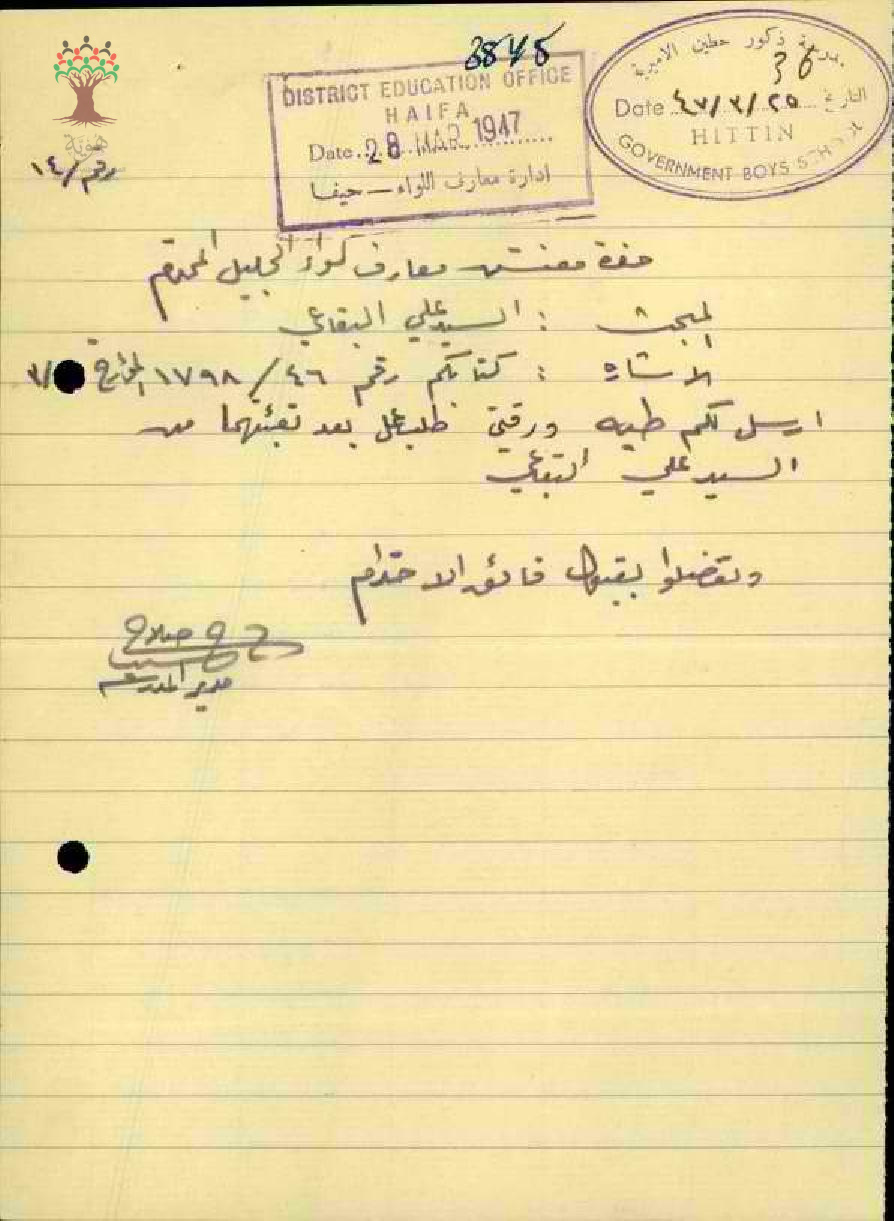 3545
DISTRICT EDUCATION OFFICE
HAIFA
Date 28 MAR 1947
ادارة معارف اللواء - حيفا
مدرسة ذكور حطين الاميرية
36
Date ٤٧/٣/٢٥ التاريخ
HITTIN
GOVERNMENT BOYS SCHOOL
هوية
رقم /١٤
حضرة مفتش معارف لواء الجليل المحترم
المبحث : السيد علي البقاعي
الاشارة : كتابكم رقم ١٧٩٨/٤٦ المؤرخ
ارسل لكم طيه ورقتي طلب عمل بعد تعبئتهما من
السيد علي البقاعي
وتفضلوا بقبول فائق الاحترام
صلاح
مدير المدرسة